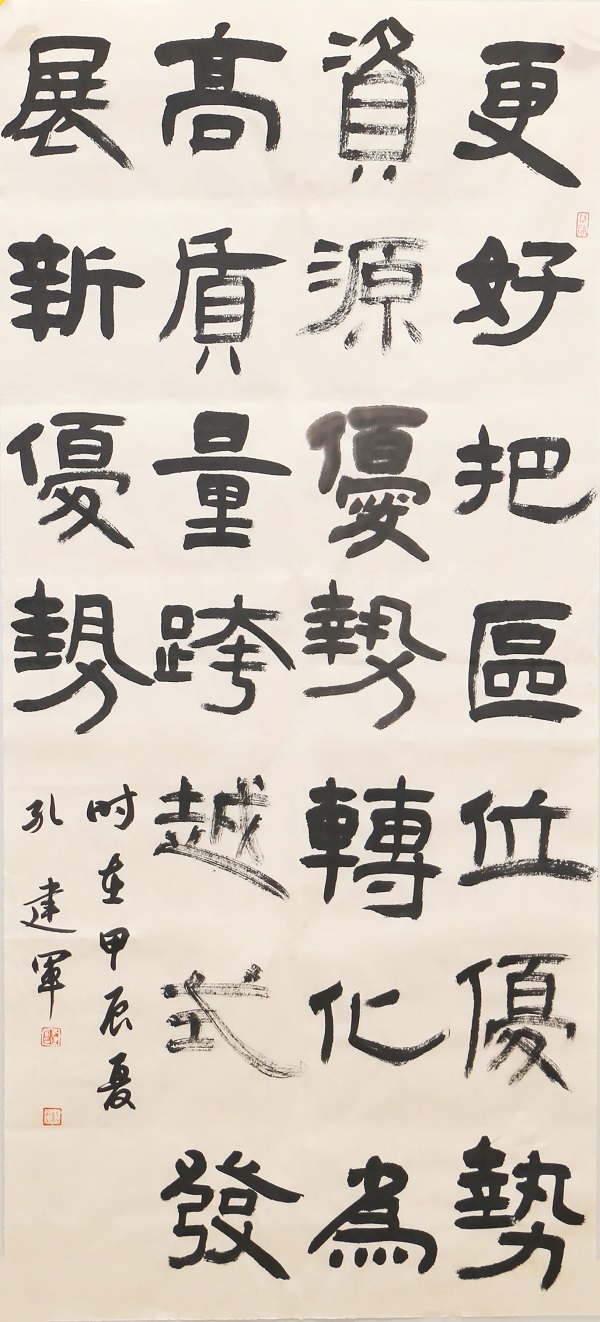 更好把區位優勢
資源優勢轉化為
高質量跨越式發
展新優勢
时在甲辰夏
孔建军